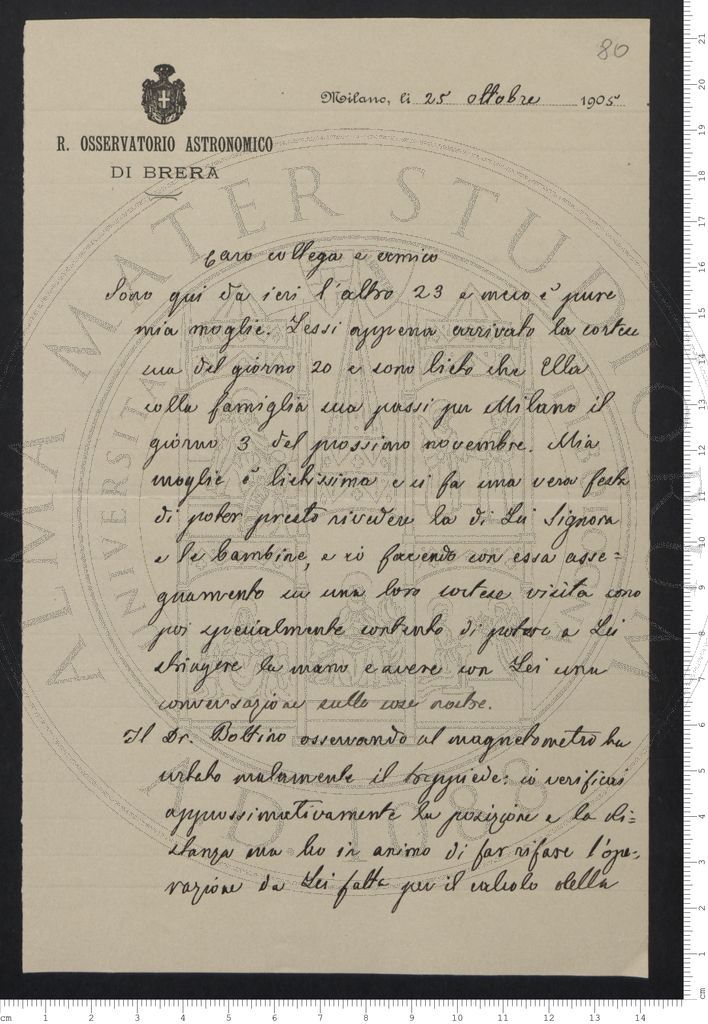 80
Milano, li 25 ottobre 1905
R. OSSERVATORIO ASTRONOMICO
DI BRERA
Caro collega e amico
Sono qui da ieri l'altro 23 e meco è pure
mia moglie. Lessi appena arrivato la cortese
sua del giorno 20 e sono lieto che Ella
colla famiglia sua passi per Milano il
giorno 3 del prossimo novembre. Mia
moglie è lietissima e si fa una vera festa
di poter presto rivedere la di Lei Signora
e le bambine, e io facendo con essa asse=
gnamento su una loro cortese visita sono
poi specialmente contento di potere a Lei
stringere la mano e avere con Lei una
conversazione sulle cose nostre.
Il Dr. Bottino osservando al magnetometro ha
urtato malamente il treppiede: io verificai
approssimativamente la posizione e la di=
stanza ma ho in animo di far rifare l'ope-
razione da Lei fatta per il calcolo della
ALMA MATER STUDIORUM
UNIVERSITA
BOLOGNA
A.D. 1088